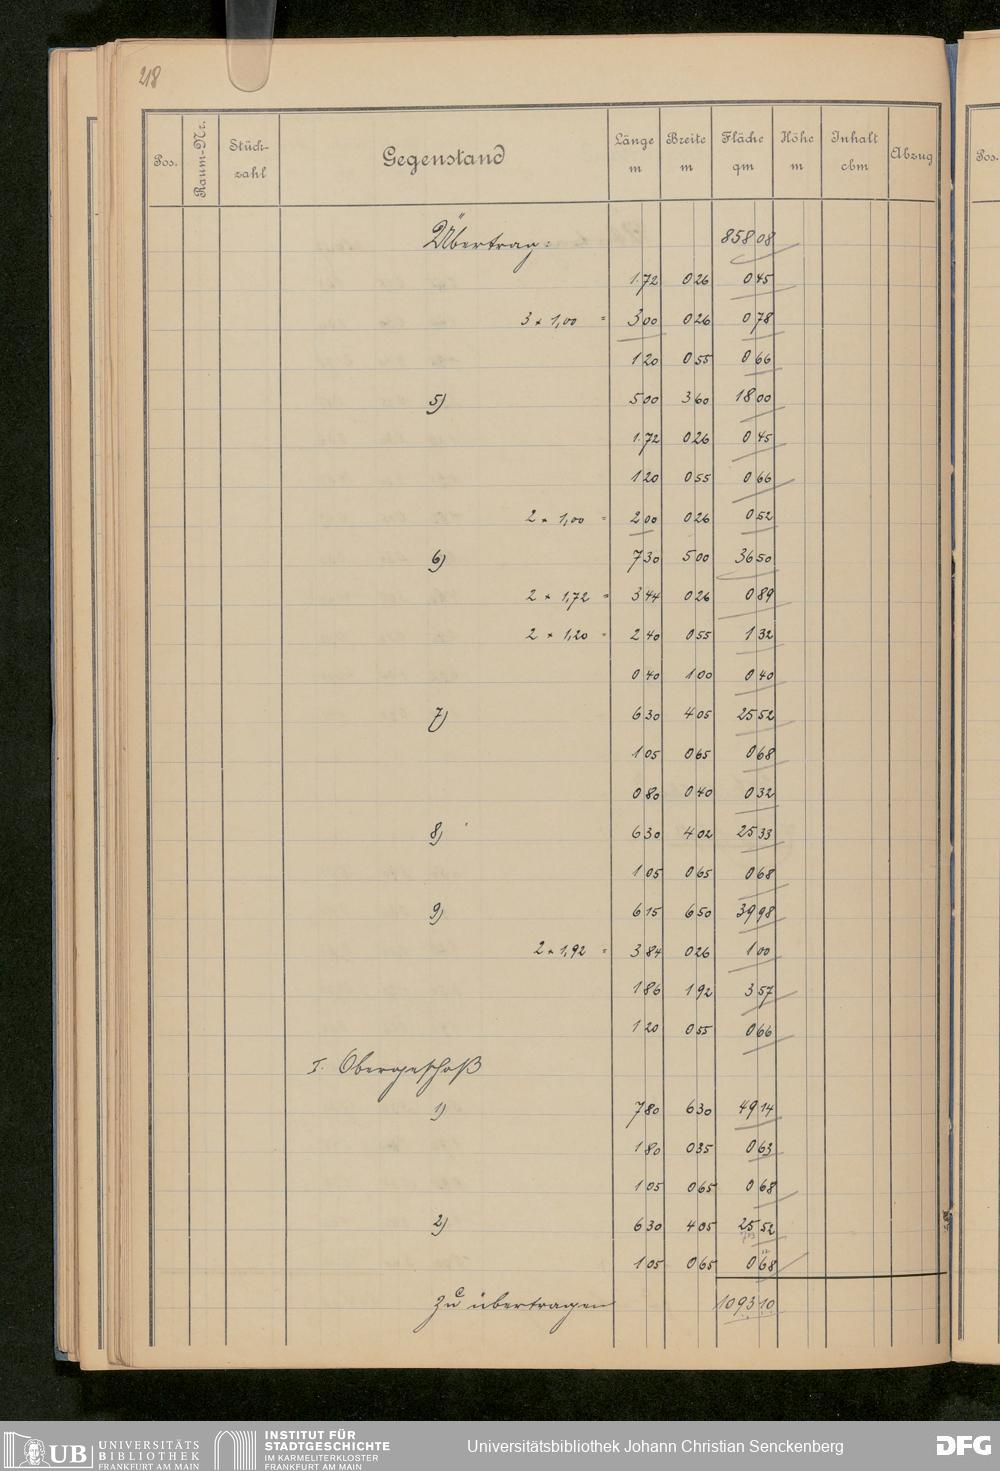 218
Pos. Raum-Nr. Stückzahl Gegenstand Länge m Breite m Fläche qm Höhe m Inhalt cbm Abzug
Pos.
Übertrag: 858 08
1.72 0 26 0 45
3 × 1,00 = 3 00 0 26 0 78
1 20 0 55 0 66
5) 5 00 3 60 18 00
1.72 0 26 0 45
1 20 0 55 0 66
2 × 1,00 = 2 00 0 26 0 52
6) 7 30 5 00 36 50
2 × 1,72 = 3 44 0 26 0 89
2 × 1,20 = 2 40 0 55 1 32
0 40 1 00 0 40
7) 6 30 4 05 25 52
1 05 0 65 0 68
0 80 0 40 0 32
8) 6 30 4 02 25 33
1 05 0 65 0 68
9) 6 15 6 50 39 98
2 × 1,92 = 3 84 0 26 1 00
1 86 1 92 3 57
1 20 0 55 0 66
I. Obergeschoß
1) 7 80 6 30 49 14
1 80 0 35 0 63
1 05 0 65 0 68
2) 6 30 4 05 25 52
1 05 0 65 0 68
Zu übertragen 1093 10
UB UNIVERSITÄTS BIBLIOTHEK FRANKFURT AM MAIN
INSTITUT FÜR STADTGESCHICHTE IM KARMELITERKLOSTER FRANKFURT AM MAIN
Universitätsbibliothek Johann Christian Senckenberg
DFG